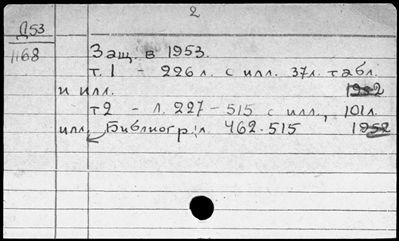 2
Д53
1168
Защ. в 1953.
т. 1 - 226 л. с илл. 37л. табл.
и илл. 1952
т2 - л. 227-515 с илл., 101л.
илл. Библиогр: л. 462-515 1952